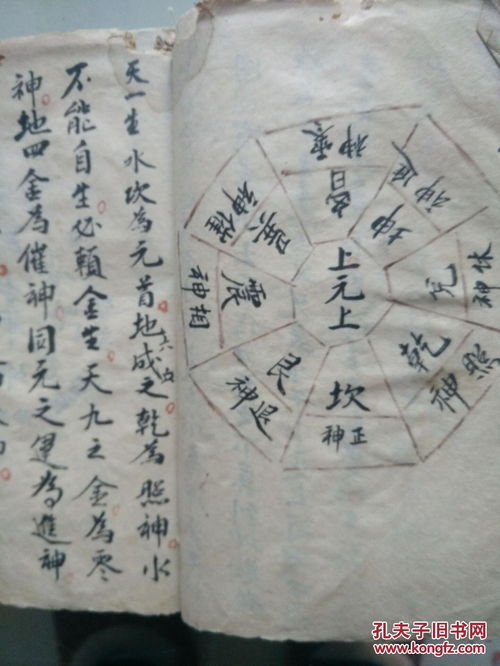 天一生水坎為元首地六白成之乾為照神水
不能自生必賴金生天九之金為零
神地四金為催神同元之運為進神
上元上
坎
正神
乾
照神
兌
休神
坤
進神
巽
催神
震
相神
艮
退神
孔夫子旧书网
www.kongfz.com